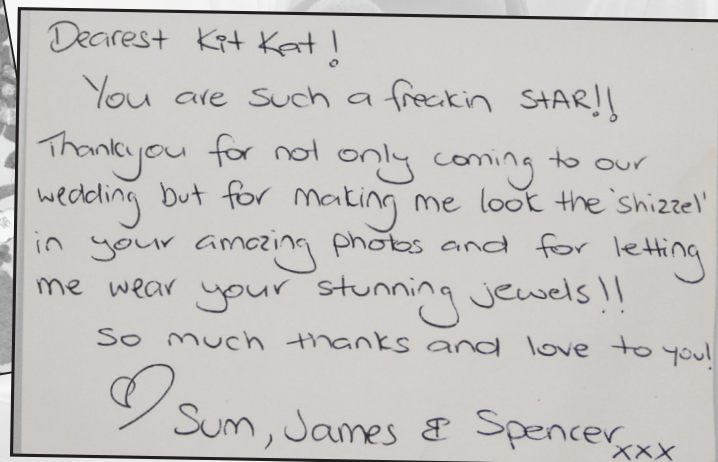 Dearest Kit Kat!
You are such a freakin STAR!!
Thankyou for not only coming to our
wedding but for making me look the 'shizzel'
in your amazing photos and for letting
me wear your stunning jewels!!
So much thanks and love to you!
Sum, James & Spencer xxx